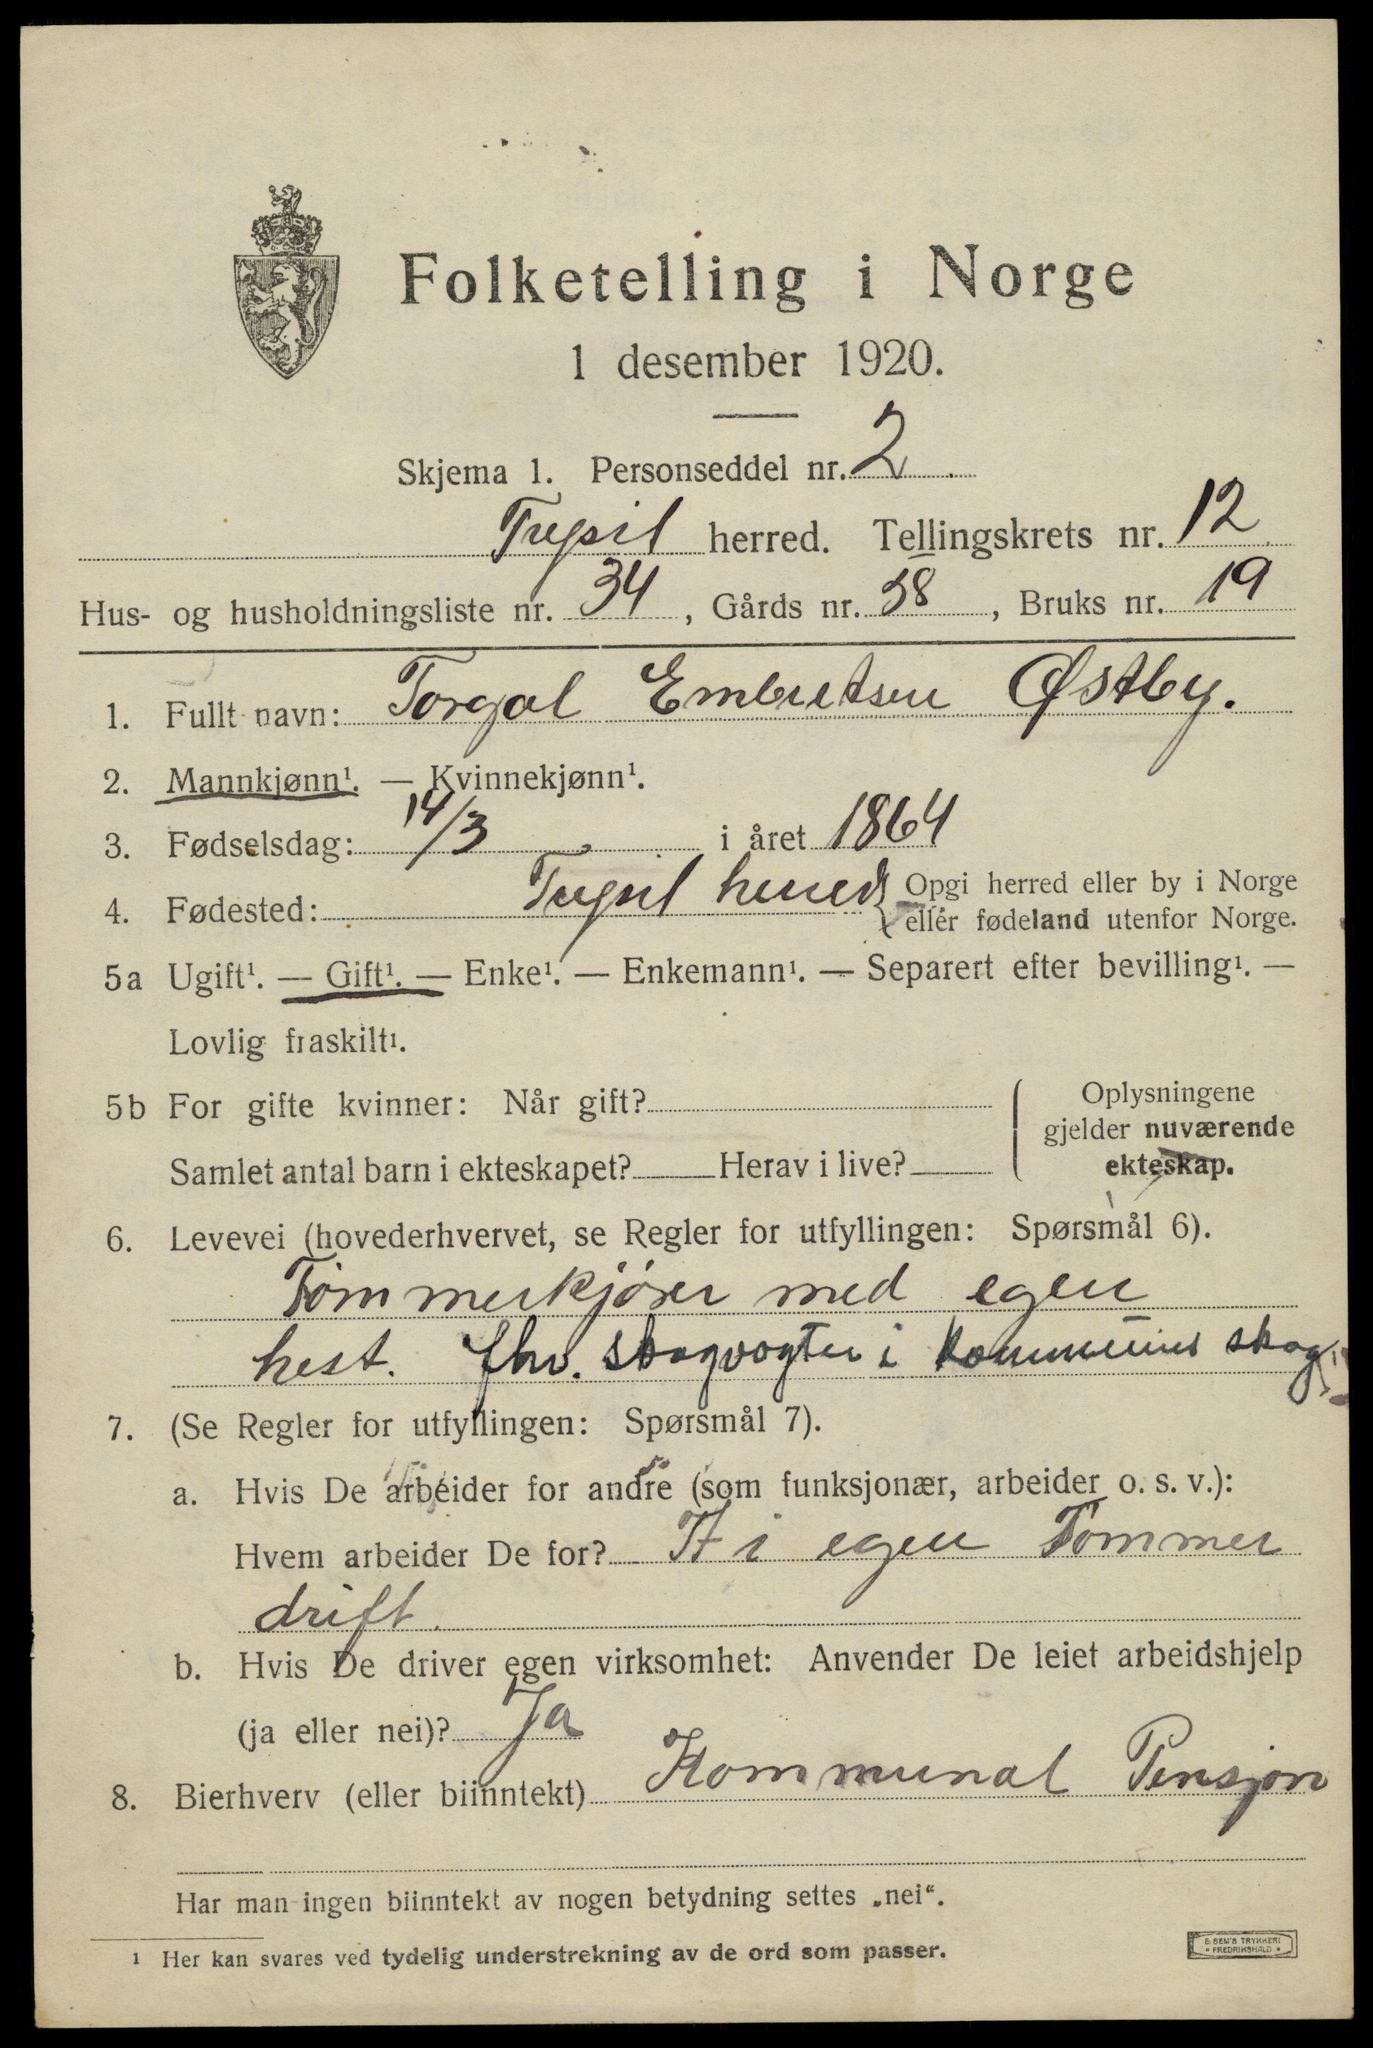 Folketelling i Norge
1 desember 1920.
Skjema 1. Personseddel nr. 2
Trysil herred. Tellingskrets nr. 12
Hus- og husholdningsliste nr. 34, Gårds nr. 58, Bruks nr. 19
1. Fullt navn: Torgal Embretsen Østby.
2. Mannkjønn¹. — Kvinnekjønn¹.
3. Fødselsdag: 14/3 i året 1864
4. Fødested: Trysil herred { Opgi herred eller by i Norge
eller fødeland utenfor Norge.
5a Ugift¹. — Gift¹. — Enke¹. — Enkemann¹. — Separert efter bevilling¹. —
Lovlig fraskilt¹.
5b For gifte kvinner: Når gift? { Oplysningene
gjelder nuværende
Samlet antal barn i ekteskapet? Herav i live? ekteskap.
6. Levevei (hovederhvervet, se Regler for utfyllingen: Spørsmål 6).
Tømmerkjører med egen
hest. fhv. skogvogter i kommunens skog
7. (Se Regler for utfyllingen: Spørsmål 7).
a. Hvis De arbeider for andre (som funksjonær, arbeider o. s. v.):
Hvem arbeider De for? i egen Tømmer
drift.
b. Hvis De driver egen virksomhet: Anvender De leiet arbeidshjelp
(ja eller nei)? Ja
8. Bierhverv (eller biinntekt) Kommunal Pensjon
Har man ingen biinntekt av nogen betydning settes „nei“.
¹ Her kan svares ved tydelig understrekning av de ord som passer.
E. SEM'S TRYKKERI
• FREDRIKSHALD •